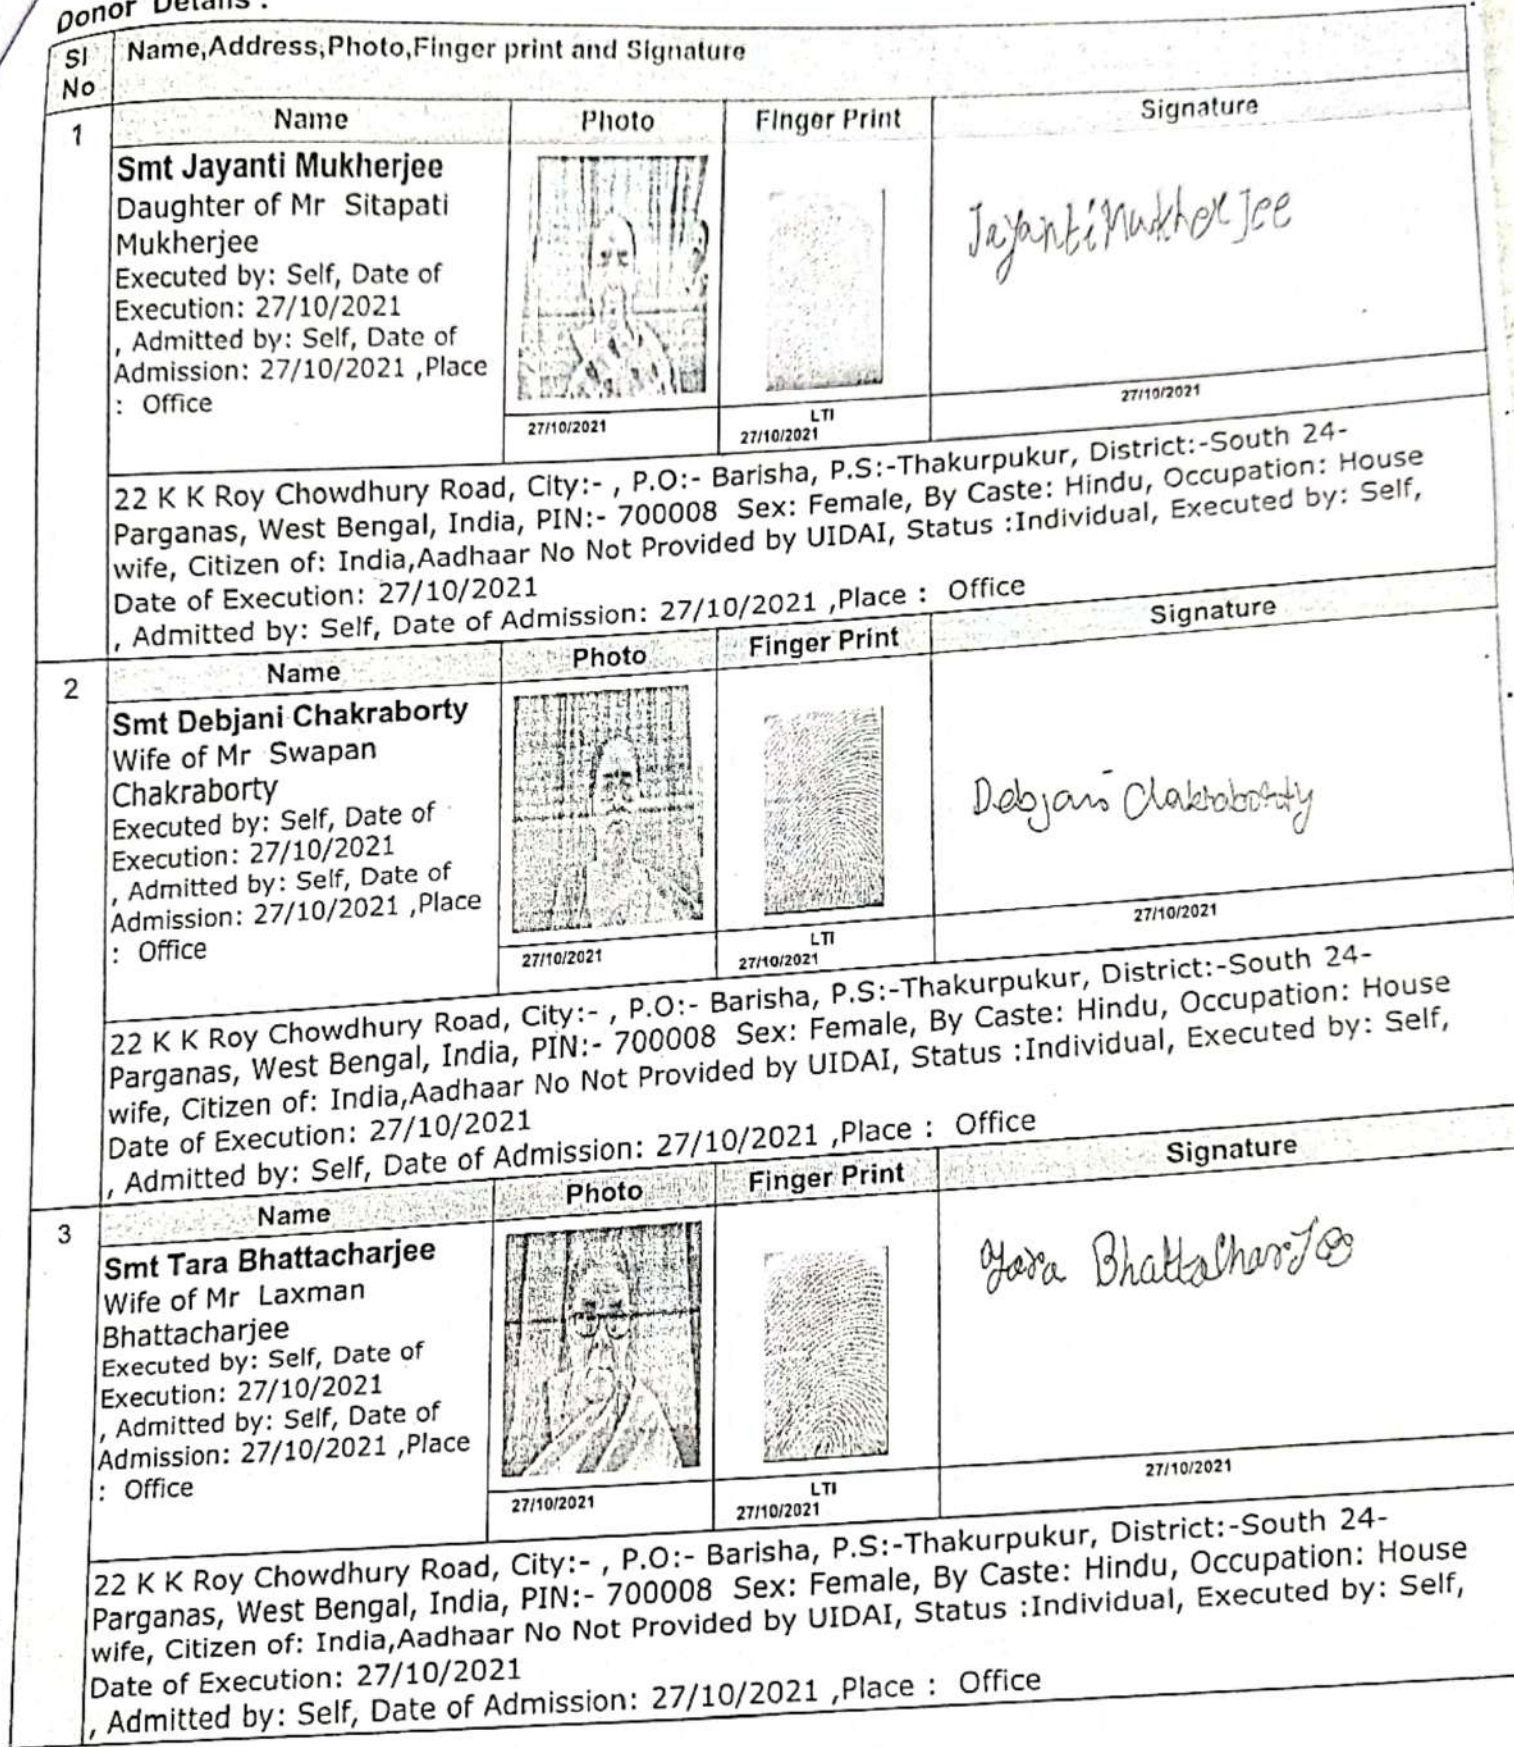 Donor Details :
Sl No Name,Address,Photo,Finger print and Signature
1 Name Photo Finger Print Signature
Smt Jayanti Mukherjee
Daughter of Mr Sitapati
Mukherjee
Executed by: Self, Date of
Execution: 27/10/2021
, Admitted by: Self, Date of
Admission: 27/10/2021 ,Place
: Office
Jayanti Mukherjee
27/10/2021
LTI
27/10/2021
27/10/2021
22 K K Roy Chowdhury Road, City:- , P.O:- Barisha, P.S:-Thakurpukur, District:-South 24-
Parganas, West Bengal, India, PIN:- 700008 Sex: Female, By Caste: Hindu, Occupation: House
wife, Citizen of: India,Aadhaar No Not Provided by UIDAI, Status :Individual, Executed by: Self,
Date of Execution: 27/10/2021
, Admitted by: Self, Date of Admission: 27/10/2021 ,Place : Office
2 Name Photo Finger Print Signature
Smt Debjani Chakraborty
Wife of Mr Swapan
Chakraborty
Executed by: Self, Date of
Execution: 27/10/2021
, Admitted by: Self, Date of
Admission: 27/10/2021 ,Place
: Office
Debjani Chakraborty
27/10/2021
LTI
27/10/2021
27/10/2021
22 K K Roy Chowdhury Road, City:- , P.O:- Barisha, P.S:-Thakurpukur, District:-South 24-
Parganas, West Bengal, India, PIN:- 700008 Sex: Female, By Caste: Hindu, Occupation: House
wife, Citizen of: India,Aadhaar No Not Provided by UIDAI, Status :Individual, Executed by: Self,
Date of Execution: 27/10/2021
, Admitted by: Self, Date of Admission: 27/10/2021 ,Place : Office
3 Name Photo Finger Print Signature
Smt Tara Bhattacharjee
Wife of Mr Laxman
Bhattacharjee
Executed by: Self, Date of
Execution: 27/10/2021
, Admitted by: Self, Date of
Admission: 27/10/2021 ,Place
: Office
Tara Bhattacharjee
27/10/2021
LTI
27/10/2021
27/10/2021
22 K K Roy Chowdhury Road, City:- , P.O:- Barisha, P.S:-Thakurpukur, District:-South 24-
Parganas, West Bengal, India, PIN:- 700008 Sex: Female, By Caste: Hindu, Occupation: House
wife, Citizen of: India,Aadhaar No Not Provided by UIDAI, Status :Individual, Executed by: Self,
Date of Execution: 27/10/2021
, Admitted by: Self, Date of Admission: 27/10/2021 ,Place : Office